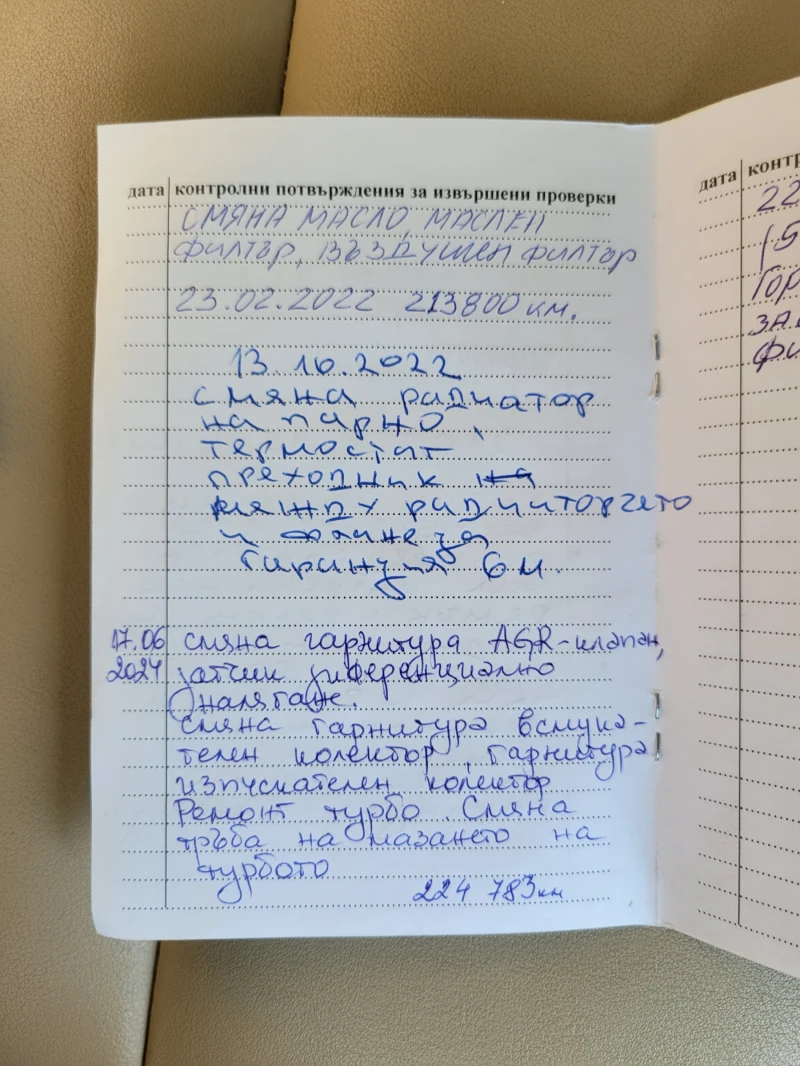 дата контролни потвърждения за извършени проверки
СМЯНА МАСЛО, МАСЛЕН
ФИЛТЪР, ВЪЗДУШЕН ФИЛТЪР
23.02.2022 213800 км.
13.10.2022
смяна радиатор
на парно,
термостат
преходник на
между радиаторчето
и фланеца
Гаранция 6 м.
17.06 смяна гарнитура AGR-клапан,
2024 датчик диференциално
налягане.
Смяна гарнитура всмука-
телен колектор, гарнитура
изпускателен колектор
Ремонт турбо. Смяна
тръба на мазането на
турбото
224 783 км
дата контр
22
(5
ГОР
ЗА
ФИ